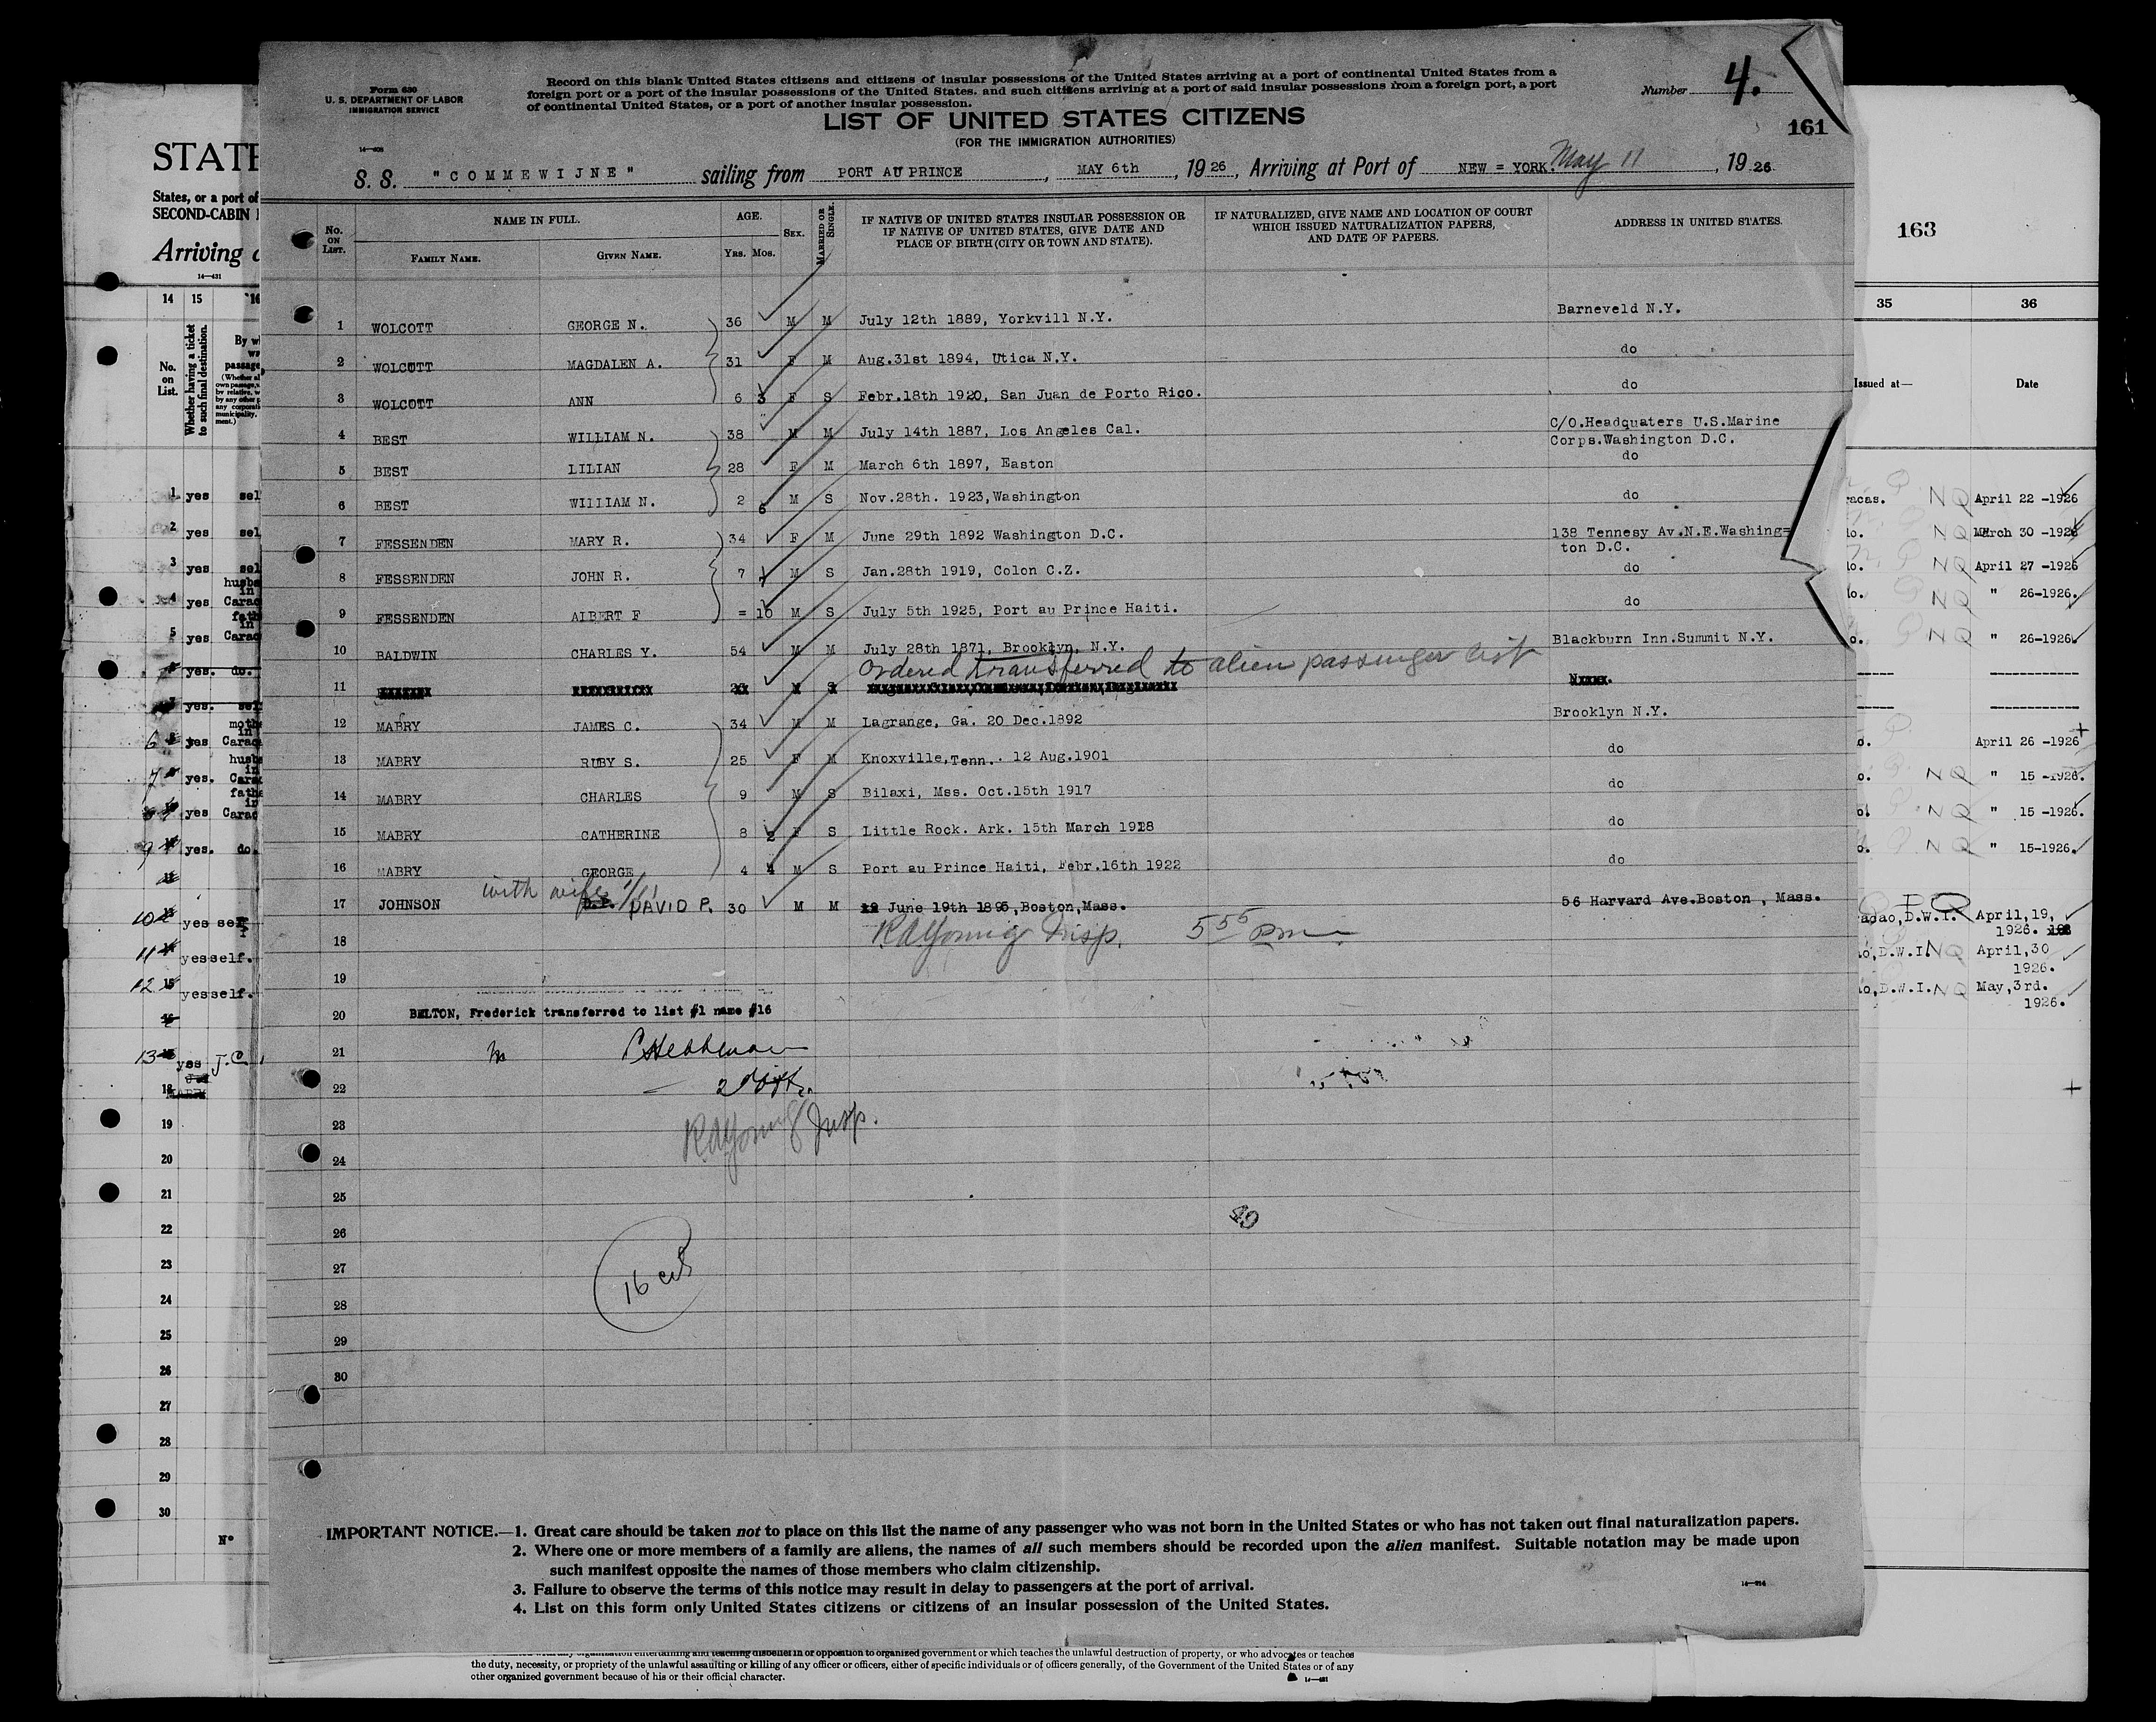 Form 630
U. S. DEPARTMENT OF LABOR
IMMIGRATION SERVICE
Record on this blank United States citizens and citizens of insular possessions of the United States arriving at a port of continental United States from a
foreign port or a port of the insular possessions of the United States. and such citizens arriving at a port of said insular possessions from a foreign port, a port
of continental United States, or a port of another insular possession.
Number 4.
161
LIST OF UNITED STATES CITIZENS
(FOR THE IMMIGRATION AUTHORITIES)
S. S. "COMMEWIJNE" sailing from PORT AU PRINCE, MAY 6th, 1926, Arriving at Port of NEW = YORK. May 11, 1926.
No. ON LIST. NAME IN FULL. FAMILY NAME. GIVEN NAME. AGE. YRS. MOS. SEX. MARRIED OR SINGLE. IF NATIVE OF UNITED STATES INSULAR POSSESSION OR IF NATIVE OF UNITED STATES, GIVE DATE AND PLACE OF BIRTH (CITY OR TOWN AND STATE). IF NATURALIZED, GIVE NAME AND LOCATION OF COURT WHICH ISSUED NATURALIZATION PAPERS, AND DATE OF PAPERS. ADDRESS IN UNITED STATES.
1 WOLCOTT GEORGE N. 36 M M July 12th 1889, Yorkvill N.Y. Barneveld N.Y.
2 WOLCOTT MAGDALEN A. 31 F M Aug.31st 1894, Utica N.Y. do
3 WOLCOTT ANN 6 3 F S Febr.18th 1920, San Juan de Porto Rico. do
4 BEST WILLIAM N. 38 M M July 14th 1887, Los Angeles Cal. C/O.Headquaters U.S.Marine Corps.Washington D.C.
5 BEST LILIAN 28 F M March 6th 1897, Easton do
6 BEST WILLIAM N. 2 6 M S Nov.28th. 1923,Washington do
7 FESSENDEN MARY R. 34 F M June 29th 1892 Washington D.C. 138 Tennesy Av.N.E.Washing= ton D.C.
8 FESSENDEN JOHN R. 7 M S Jan.28th 1919, Colon C.Z. do
9 FESSENDEN ALBERT F = 10 M S July 5th 1925, Port au Prince Haiti. do
10 BALDWIN CHARLES Y. 54 M M July 28th 1871, Brooklyn, N.Y. Blackburn Inn.Summit N.Y.
11 Ordered transferred to alien passenger list
12 MABRY JAMES C. 34 M M Lagrange, Ga. 20 Dec.1892 Brooklyn N.Y.
13 MABRY RUBY S. 25 F M Knoxville,Tenn.. 12 Aug.1901 do
14 MABRY CHARLES 9 M S Bilaxi, Mss. Oct.15th 1917 do
15 MABRY CATHERINE 8 2 F S Little Rock. Ark. 15th March 1918 do
16 MABRY GEORGE 4 M S Port au Prince Haiti, Febr.16th 1922 do
17 JOHNSON with wife 1/1 DAVID P. 30 M M June 19th 1895,Boston,Mass. 56 Harvard Ave.Boston , Mass.
18 RAYoung Insp. 5 55 pm
19
20 BELTON, Frederick transferred to list #1 name #16
21
22
23 RAYoung Insp.
24
25
26
27 16 cit
28
29
30
49
IMPORTANT NOTICE.—1. Great care should be taken not to place on this list the name of any passenger who was not born in the United States or who has not taken out final naturalization papers.
2. Where one or more members of a family are aliens, the names of all such members should be recorded upon the alien manifest. Suitable notation may be made upon
such manifest opposite the names of those members who claim citizenship.
3. Failure to observe the terms of this notice may result in delay to passengers at the port of arrival.
4. List on this form only United States citizens or citizens of an insular possession of the United States.
STATE
States, or a port of
SECOND-CABIN
Arriving
14—431
14 15 16
No. on List.
Whether having a ticket to such final destination.
1 yes sel
2 yes sel
3 yes sel
4 yes Carac
5 yes Carac
yes. do.
yes. sel
6 yes Carac
7 yes. Car
yes Carac
9 yes. do.
10 yes self
11 yes self.
12 yes self.
13 yes J.C.
19
20
21
22
23
24
25
26
27
28
29
30
163
35 36
Issued at— Date
racas. N Q April 22 -1926
do. N Q March 30 -1926
do. N Q April 27 -1926
do. N Q " 26-1926.
o. N Q " 26-1926.
o. April 26 -1926
o. N Q " 15 -1926.
N Q " 15 -1926.
o. N Q " 15-1926.
acao,D.W.I. April,19, 1926.
ao,D.W.I. N Q April,30 1926.
ao,D.W.I. N Q May,3rd. 1926.
the duty, necessity, or propriety of the unlawful assaulting or killing of any officer or officers, either of specific individuals or of officers generally, of the Government of the United States or of any
other organized government because of his or their official character.